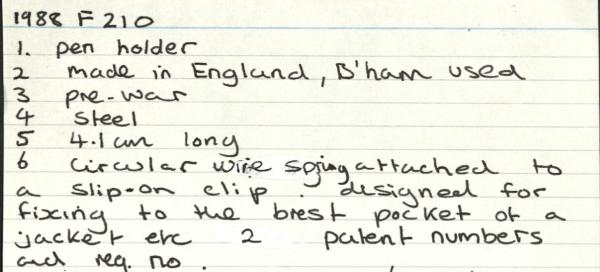 1988 F 210
1. pen holder
2 made in England, B'ham used
3 pre-war
4 steel
5 4.1cm long
6 circular wire spring attached to
a slip-on clip. designed for
fixing to the brest pocket of a
jacket etc 2 patent numbers
and reg. no.